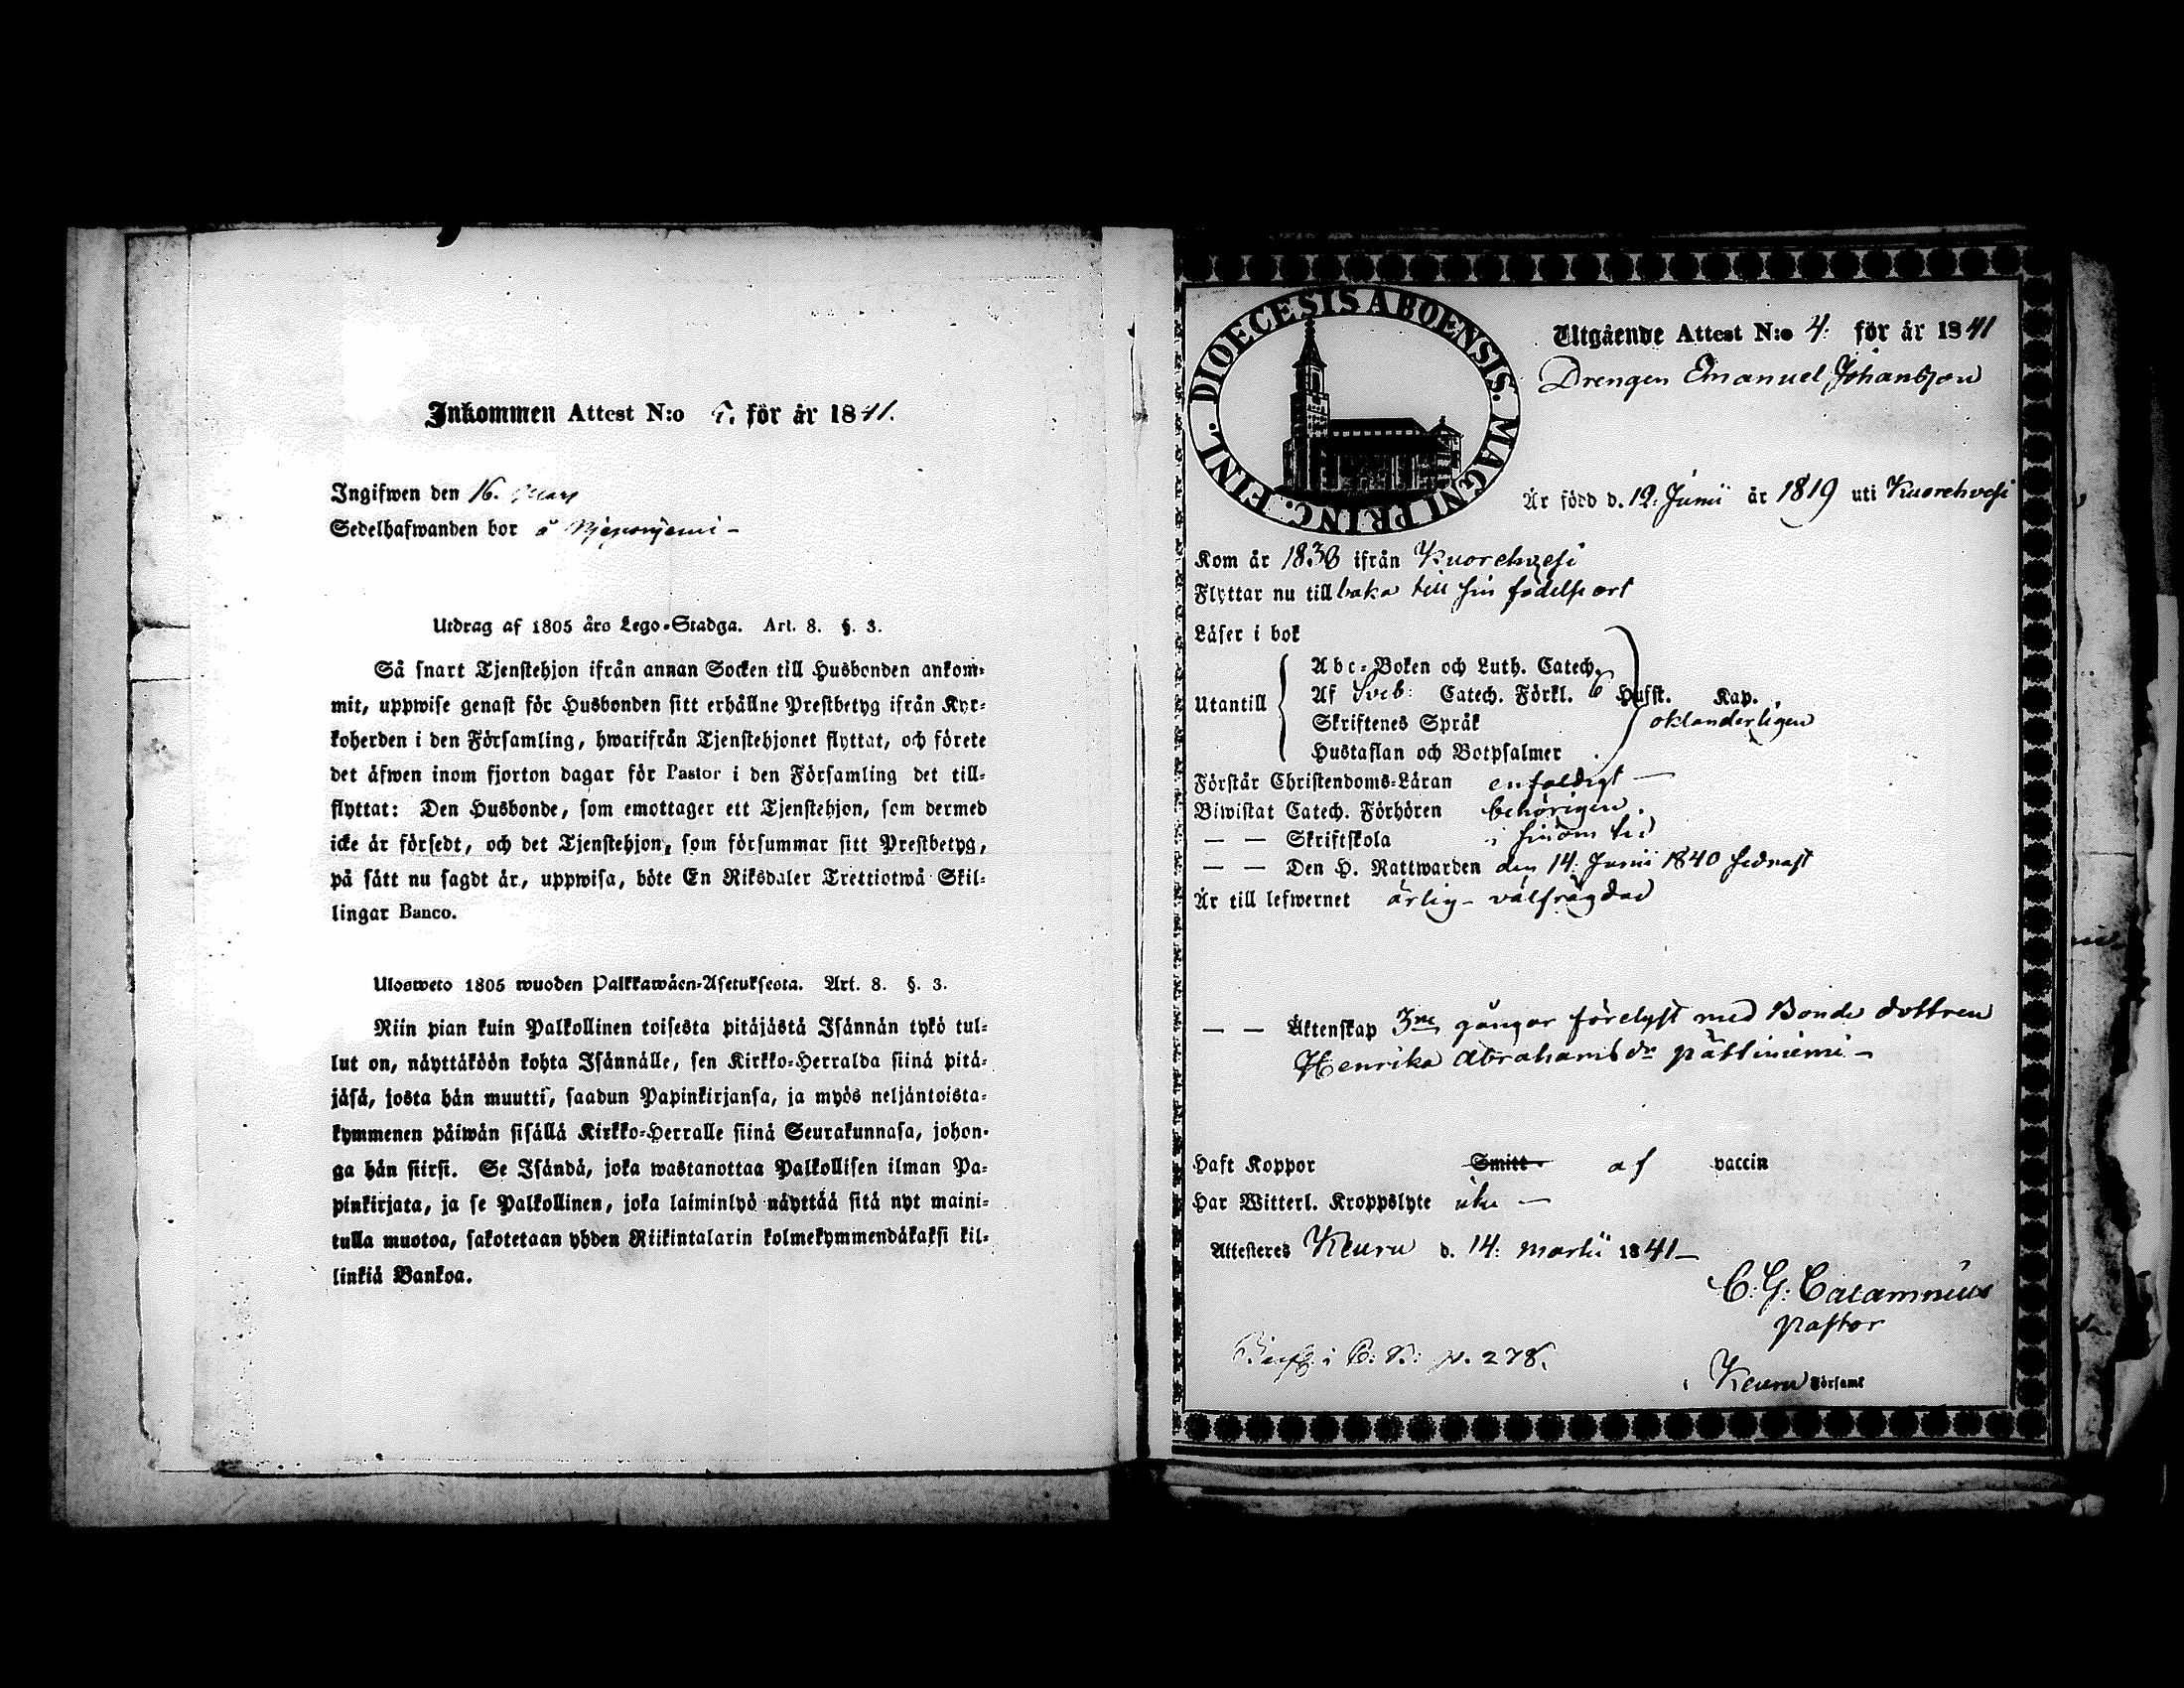 Inkommen Attest N:o för år 1841.
Ingifwen den 16. Mars
Sedelhafwanden bor å
Utdrag af 1805 års Lego-Stadga. Art. 8. §. 3.
Så snart Tjenstehjon ifrån annan Socken till Husbonden ankom-
mit, uppwise genast för Husbonden sitt erhållne Prestbetyg ifrån Kyr-
koherden i den Församling, hwarifrån Tjenstehjonet flyttat, och förete
det äfwen inom fjorton dagar för Pastor i den Församling det till-
flyttat: Den Husbonde, som emottager ett Tjenstehjon, som dermed
icke är försedt, och det Tjenstehjon, som försummar sitt Prestbetyg,
på sätt nu sagdt är, uppwisa, böte En Riksdaler Trettiotwå Skil-
lingar Banco.
Ulosweto 1805 wuoden Palkkawäen-Asetuksesta. Art. 8. §. 3.
Niin pian kuin Palkollinen toisesta pitäjästä Isännän tykö tul-
lut on, näyttäköön kohta Isännälle, sen Kirkko-Herralda siinä pitä-
jäsä, josta hän muutti, saadun Papinkirjansa, ja myös neljäntoista-
kymmenen päiwän sisällä Kirkko-Herralle siinä Seurakunnasa, johon-
ga hän siirsi. Se Isändä, joka wastanottaa Palkollisen ilman Pa-
pinkirjata, ja se Palkollinen, joka laiminlyö näyttää sitä nyt maini-
tulla muotoa, sakotetaan yhden Riikintalarin kolmekymmendäkaksi kil-
linkiä Bankoa.
DIOECESIS ABOENSIS. MAGNI PRINC. FINL.
Utgående Attest N:o 4. för år 1841
Drengen Emanuel Johansson
Är född d. 12. Junii år 1819 uti Kuorehvesi
Kom år 1838 ifrån Kuorehvesi
Flyttar nu till baka till sin födelse ort
Läser i bok
Utantill
Abc-Boken och Luth. Catech.
Af Sveb: Catech. Förkl. 6 Husst. Kap.
Skriftenes Språk oklanderligen
Hustaflan och Botpsalmer
Förstår Christendoms-Läran enfaldigt —
Biwistat Catech. Förhören behörigen.
— — Skriftskola i sinom tid
— — Den H. Nattwarden den 14. Junii 1840 sednast
Är till lefwernet ärlig - välfrägdad
— — Äktenskap 3ne gångor förelyst med Bonde dottren
Henrika Abrahamsdr Pättiniemi —
Haft Koppor Smitt af vaccin
Har Witterl. Kroppslyte icke —
Attesteres Keuru d. 14. Martii 1841 —
C. G. Calamnius
Pastor
i C. B: p. 278.
i Keuru Församl